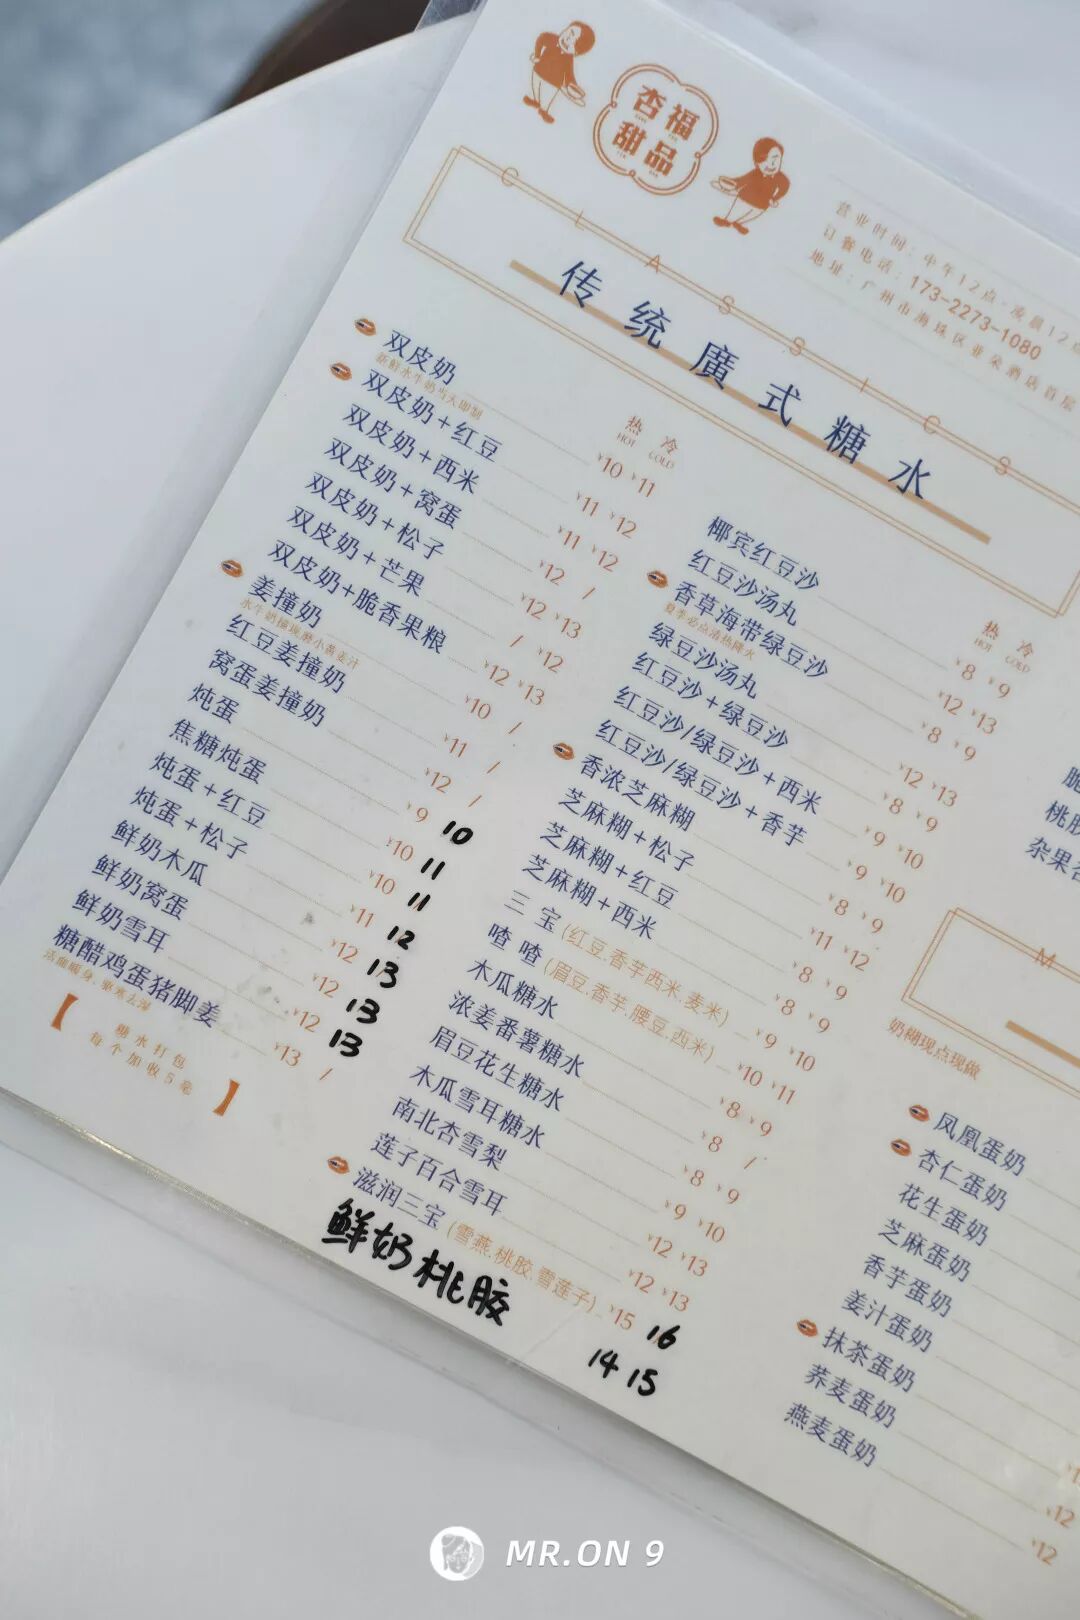 杏福
甜品
营业时间:中午12点-凌晨12点
订餐电话:173-2273-1080
地址:广州市海珠区亚朵酒店首层
CLASSICS
传统廣式糖水
热 冷
HOT COLD
双皮奶 ¥10 ¥11
新鲜水牛奶当天即制
双皮奶+红豆 ¥11 ¥12
双皮奶+西米 ¥11 ¥12
双皮奶+窝蛋 ¥12 /
双皮奶+松子 ¥12 ¥13
双皮奶+芒果 / ¥12
双皮奶+脆香果粮 ¥12 ¥13
姜撞奶 ¥10 /
水牛奶撞现磨小黄姜汁
红豆姜撞奶 ¥11 /
窝蛋姜撞奶 ¥12 /
炖蛋 ¥9 10
焦糖炖蛋 ¥10 11
炖蛋+红豆 ¥10 11
炖蛋+松子 ¥11 12
鲜奶木瓜 ¥12 13
鲜奶窝蛋 ¥12 13
鲜奶雪耳 ¥12 13
糖醋鸡蛋猪脚姜 ¥13 /
活血暖身,驱寒去湿
【糖水打包
每个加收5毫】
热 冷
HOT COLD
椰宾红豆沙 ¥8 ¥9
红豆沙汤丸 ¥12 ¥13
香草海带绿豆沙 ¥8 ¥9
夏季必点清热降火
绿豆沙汤丸 ¥12 ¥13
红豆沙+绿豆沙 ¥8 ¥9
红豆沙/绿豆沙+西米 ¥9 ¥10
红豆沙/绿豆沙+香芋 ¥9 ¥10
香浓芝麻糊 ¥8 ¥9
芝麻糊+松子 ¥11 ¥12
芝麻糊+红豆 ¥8 ¥9
芝麻糊+西米 ¥8 ¥9
三宝(红豆.香芋西米.麦米) ¥9 ¥10
喳喳(眉豆.香芋.腰豆.西米) ¥10 ¥11
木瓜糖水 ¥8 ¥9
浓姜番薯糖水 ¥8 /
眉豆花生糖水 ¥8 ¥9
木瓜雪耳糖水 ¥9 ¥10
南北杏雪梨 ¥12 ¥13
莲子百合雪耳 ¥12 ¥13
滋润三宝(雪燕.桃胶.雪莲子) ¥15 16
鲜奶桃胶 14 15
脆
桃胶
杂果
M
奶糊现点现做
凤凰蛋奶
杏仁蛋奶
花生蛋奶
芝麻蛋奶
香芋蛋奶
姜汁蛋奶
抹茶蛋奶
荞麦蛋奶 ¥12
燕麦蛋奶 ¥12
MR.ON 9